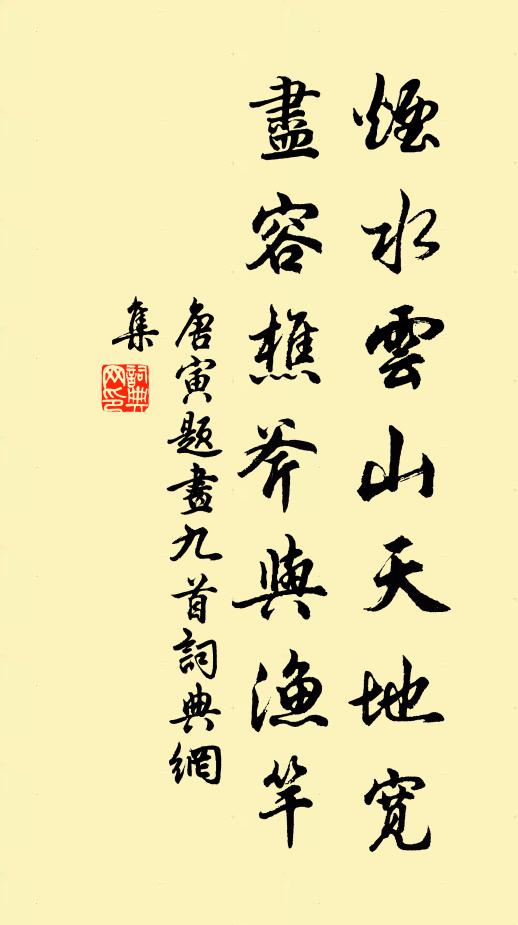 煙水雲山天地寬
盡容樵斧與漁竿
唐寅題畫九首詞典網
集
詞典
网印